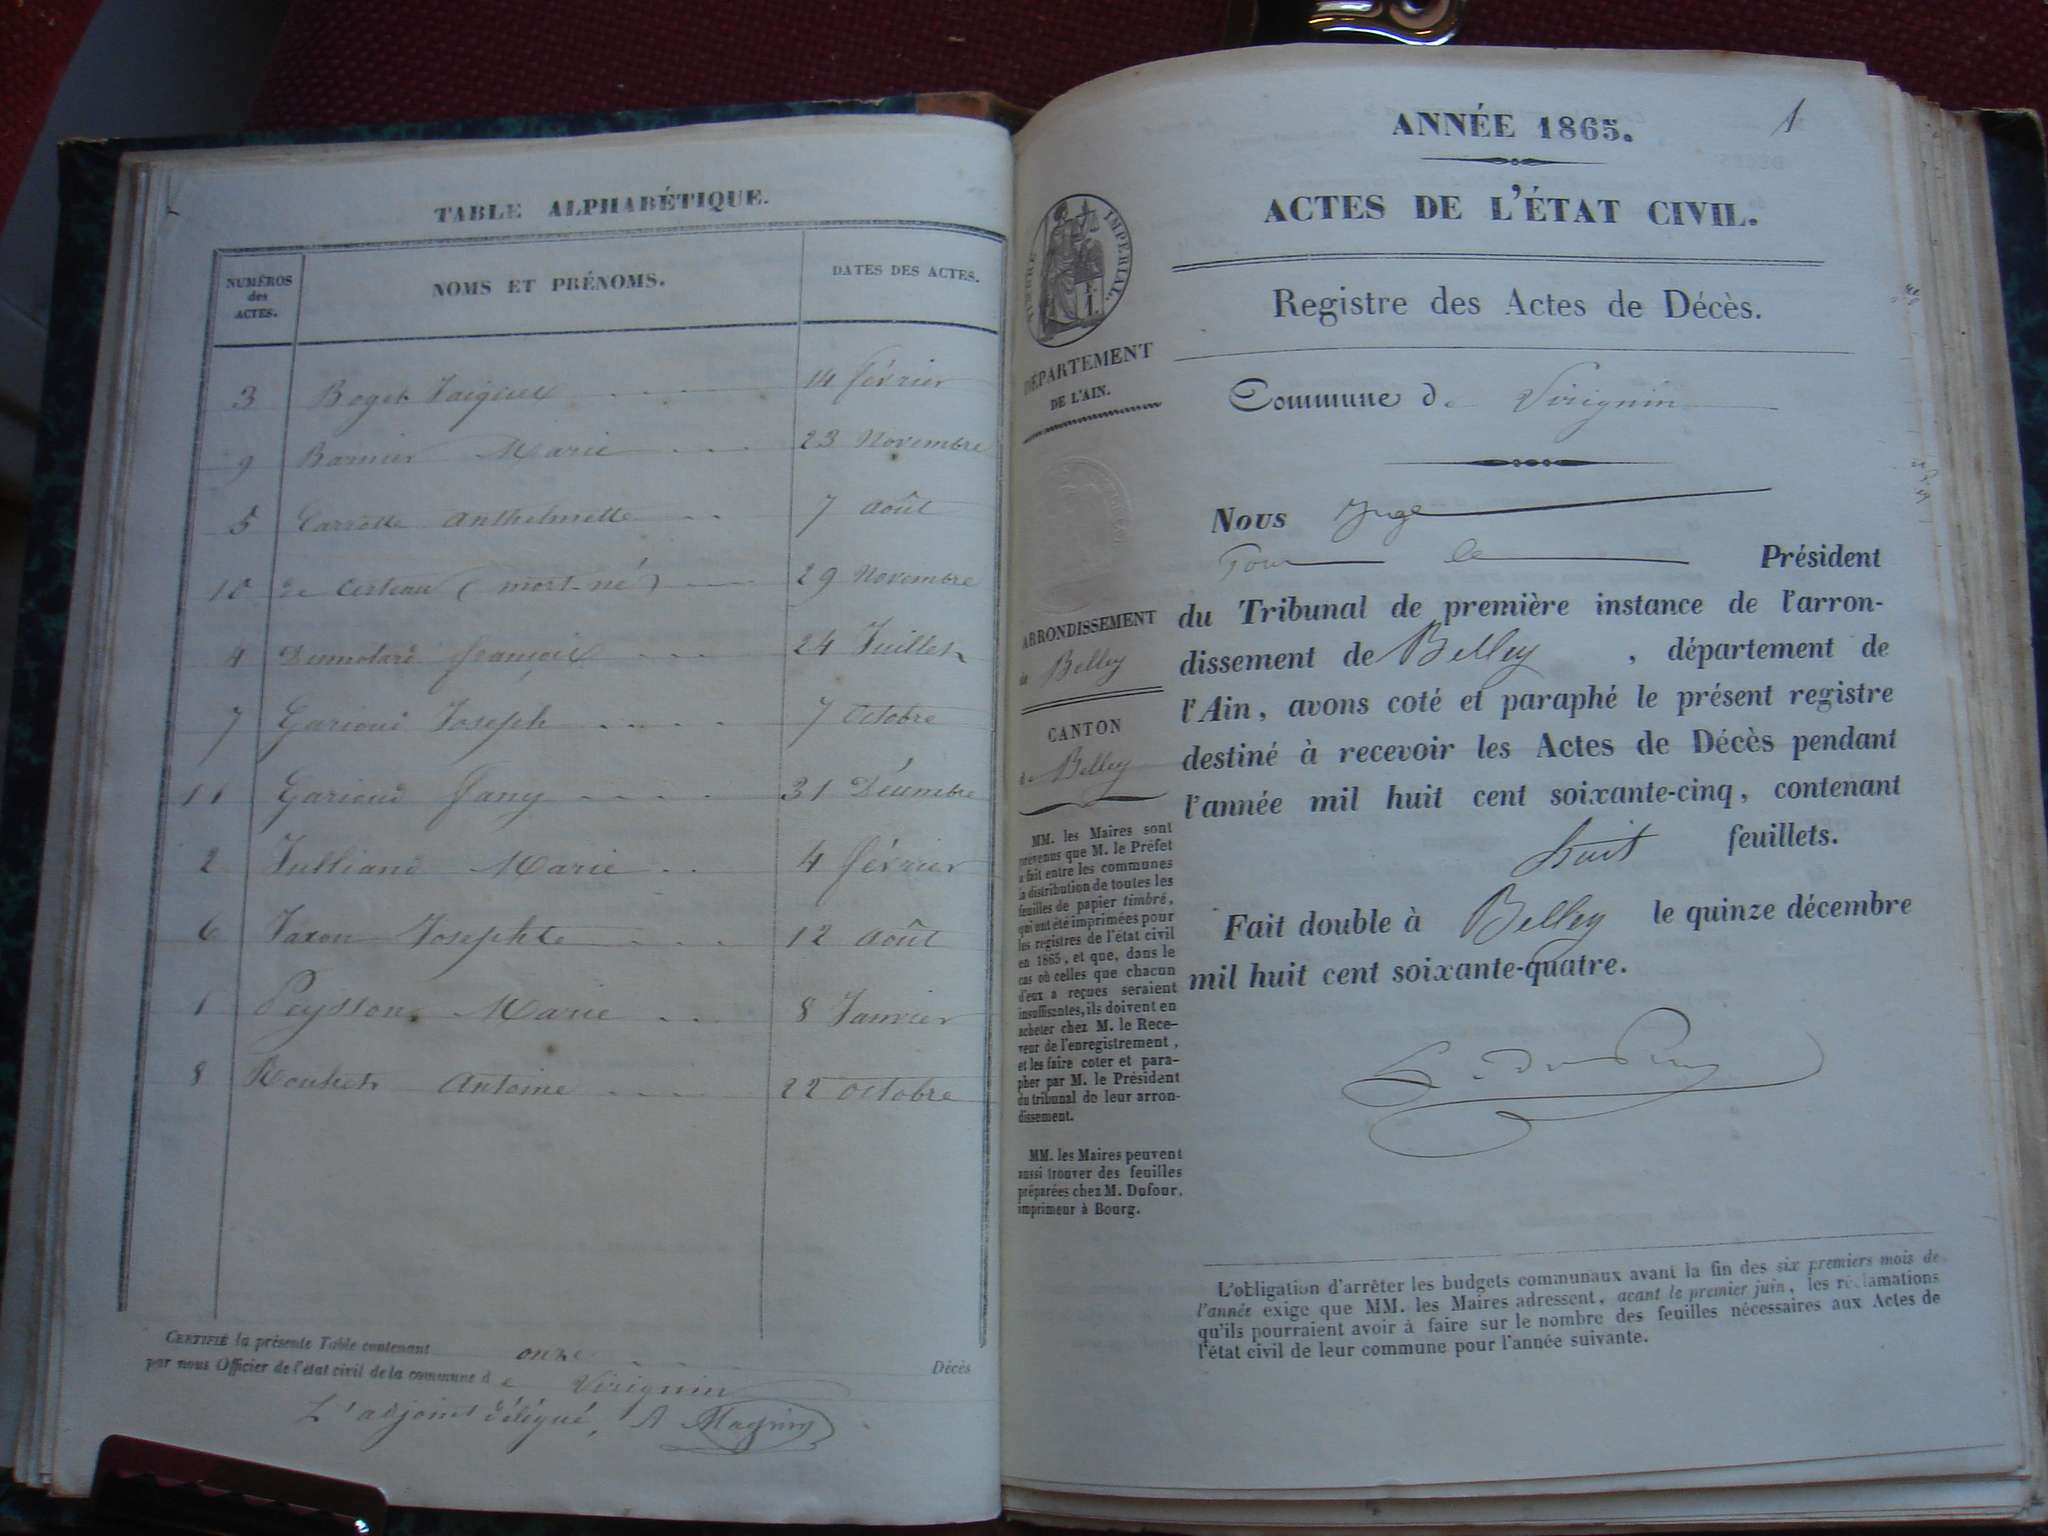 TABLE ALPHABÉTIQUE.
NUMÉROS des ACTES. NOMS ET PRÉNOMS. DATES DES ACTES.
3 Boget Jacques 14 février
9 Barnier Marie 23 Novembre
5 Carrotte Anthelmette 7 Août
10 de Certeau (mort-né) 29 Novembre
4 Dumolard françois 24 Juillet
7 Garioud Joseph 7 Octobre
11 Garioud Fany 31 Décembre
2 Julliand Marie 4 février
6 Josephte 12 Août
1 Peysson Marie 8 Janvier
8 Antoine 22 Octobre
CERTIFIÉ la présente Table contenant onze Décès
par nous Officier de l'état civil de la commune de Virignin
L'adjoint délégué, A Magnin
1
ANNÉE 1865.
ACTES DE L'ÉTAT CIVIL.
TIMBRE IMPÉRIAL.
Registre des Actes de Décès.
DÉPARTEMENT
DE L'AIN.
Commune de Virignin
Nous Juge
Pour le Président
du Tribunal de première instance de l'arron-
dissement de Belley, département de
l'Ain, avons coté et paraphé le présent registre
destiné à recevoir les Actes de Décès pendant
l'année mil huit cent soixante-cinq, contenant
huit feuillets.
Fait double à Belley le quinze décembre
mil huit cent soixante-quatre.
ARRONDISSEMENT
de Belley
CANTON
de Belley
MM. les Maires sont
prévenus que M. le Préfet
a fait entre les communes
la distribution de toutes les
feuilles de papier timbré,
qui ont été imprimées pour
les registres de l'état civil
en 1865, et que, dans le
cas où celles que chacun
d'eux a reçues seraient
insuffisantes, ils doivent en
acheter chez M. le Rece-
veur de l'enregistrement,
et les faire coter et para-
pher par M. le Président
du tribunal de leur arron-
dissement.
MM. les Maires peuvent
aussi trouver des feuilles
préparées chez M. Dufour,
imprimeur à Bourg.
L'obligation d'arrêter les budgets communaux avant la fin des six premiers mois de
l'année exige que MM. les Maires adressent, avant le premier juin, les réclamations
qu'ils pourraient avoir à faire sur le nombre des feuilles nécessaires aux Actes de
l'état civil de leur commune pour l'année suivante.